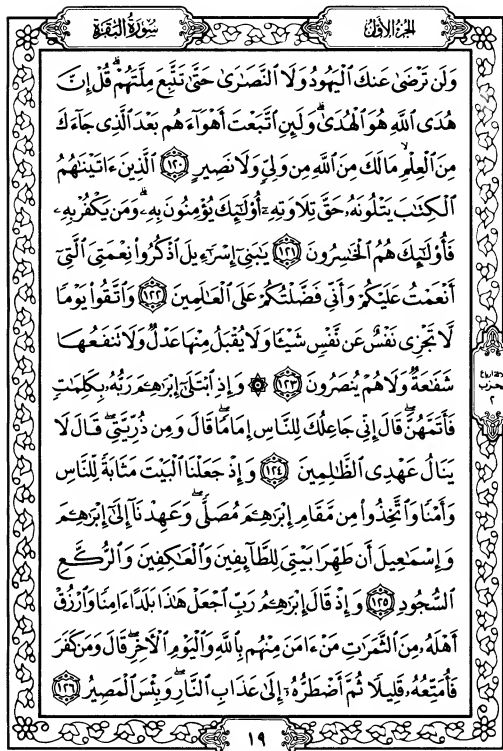 سُورَةُ البَقَرَةِ
الجُزْءُ الأَوَّلُ
وَلَن تَرْضَىٰ عَنكَ الْيَهُودُ وَلَا النَّصَارَىٰ حَتَّىٰ تَتَّبِعَ مِلَّتَهُمْ ۗ قُلْ إِنَّ
هُدَى اللَّهِ هُوَ الْهُدَىٰ ۗ وَلَئِنِ اتَّبَعْتَ أَهْوَاءَهُم بَعْدَ الَّذِي جَاءَكَ
مِنَ الْعِلْمِ ۙ مَا لَكَ مِنَ اللَّهِ مِن وَلِيٍّ وَلَا نَصِيرٍ ١٢٠ الَّذِينَ ءَاتَيْنَاهُمُ
الْكِتَابَ يَتْلُونَهُۥ حَقَّ تِلَاوَتِهِۦٓ أُوْلَٰئِكَ يُؤْمِنُونَ بِهِۦ ۗ وَمَن يَكْفُرْ بِهِۦ
فَأُوْلَٰئِكَ هُمُ الْخَاسِرُونَ ١٢١ يَٰبَنِيٓ إِسْرَٰٓءِيلَ اذْكُرُوا نِعْمَتِيَ الَّتِيٓ
أَنْعَمْتُ عَلَيْكُمْ وَأَنِّي فَضَّلْتُكُمْ عَلَى الْعَالَمِينَ ١٢٢ وَاتَّقُوا يَوْمًا
لَّا تَجْزِي نَفْسٌ عَن نَّفْسٍ شَيْئًا وَلَا يُقْبَلُ مِنْهَا عَدْلٌ وَلَا تَنفَعُهَا
شَفَاعَةٌ وَلَا هُمْ يُنصَرُونَ ١٢٣ ۞ وَإِذِ ابْتَلَىٰٓ إِبْرَٰهِـۧمَ رَبُّهُۥ بِكَلِمَاتٍ
فَأَتَمَّهُنَّ ۖ قَالَ إِنِّي جَاعِلُكَ لِلنَّاسِ إِمَامًا ۖ قَالَ وَمِن ذُرِّيَّتِي ۖ قَالَ لَا
يَنَالُ عَهْدِي الظَّالِمِينَ ١٢٤ وَإِذْ جَعَلْنَا الْبَيْتَ مَثَابَةً لِّلنَّاسِ
وَأَمْنًا وَاتَّخِذُوا مِن مَّقَامِ إِبْرَٰهِـۧمَ مُصَلًّى ۖ وَعَهِدْنَآ إِلَىٰٓ إِبْرَٰهِـۧمَ
وَإِسْمَاعِيلَ أَن طَهِّرَا بَيْتِيَ لِلطَّآئِفِينَ وَالْعَاكِفِينَ وَالرُّكَّعِ
السُّجُودِ ١٢٥ وَإِذْ قَالَ إِبْرَٰهِـۧمُ رَبِّ اجْعَلْ هَٰذَا بَلَدًا ءَامِنًا وَارْزُقْ
أَهْلَهُۥ مِنَ الثَّمَرَاتِ مَنْ ءَامَنَ مِنْهُم بِاللَّهِ وَالْيَوْمِ الْآخِرِ ۖ قَالَ وَمَن كَفَرَ
فَأُمَتِّعُهُۥ قَلِيلًا ثُمَّ أَضْطَرُّهُۥٓ إِلَىٰ عَذَابِ النَّارِ ۖ وَبِئْسَ الْمَصِيرُ ١٢٦
١٩